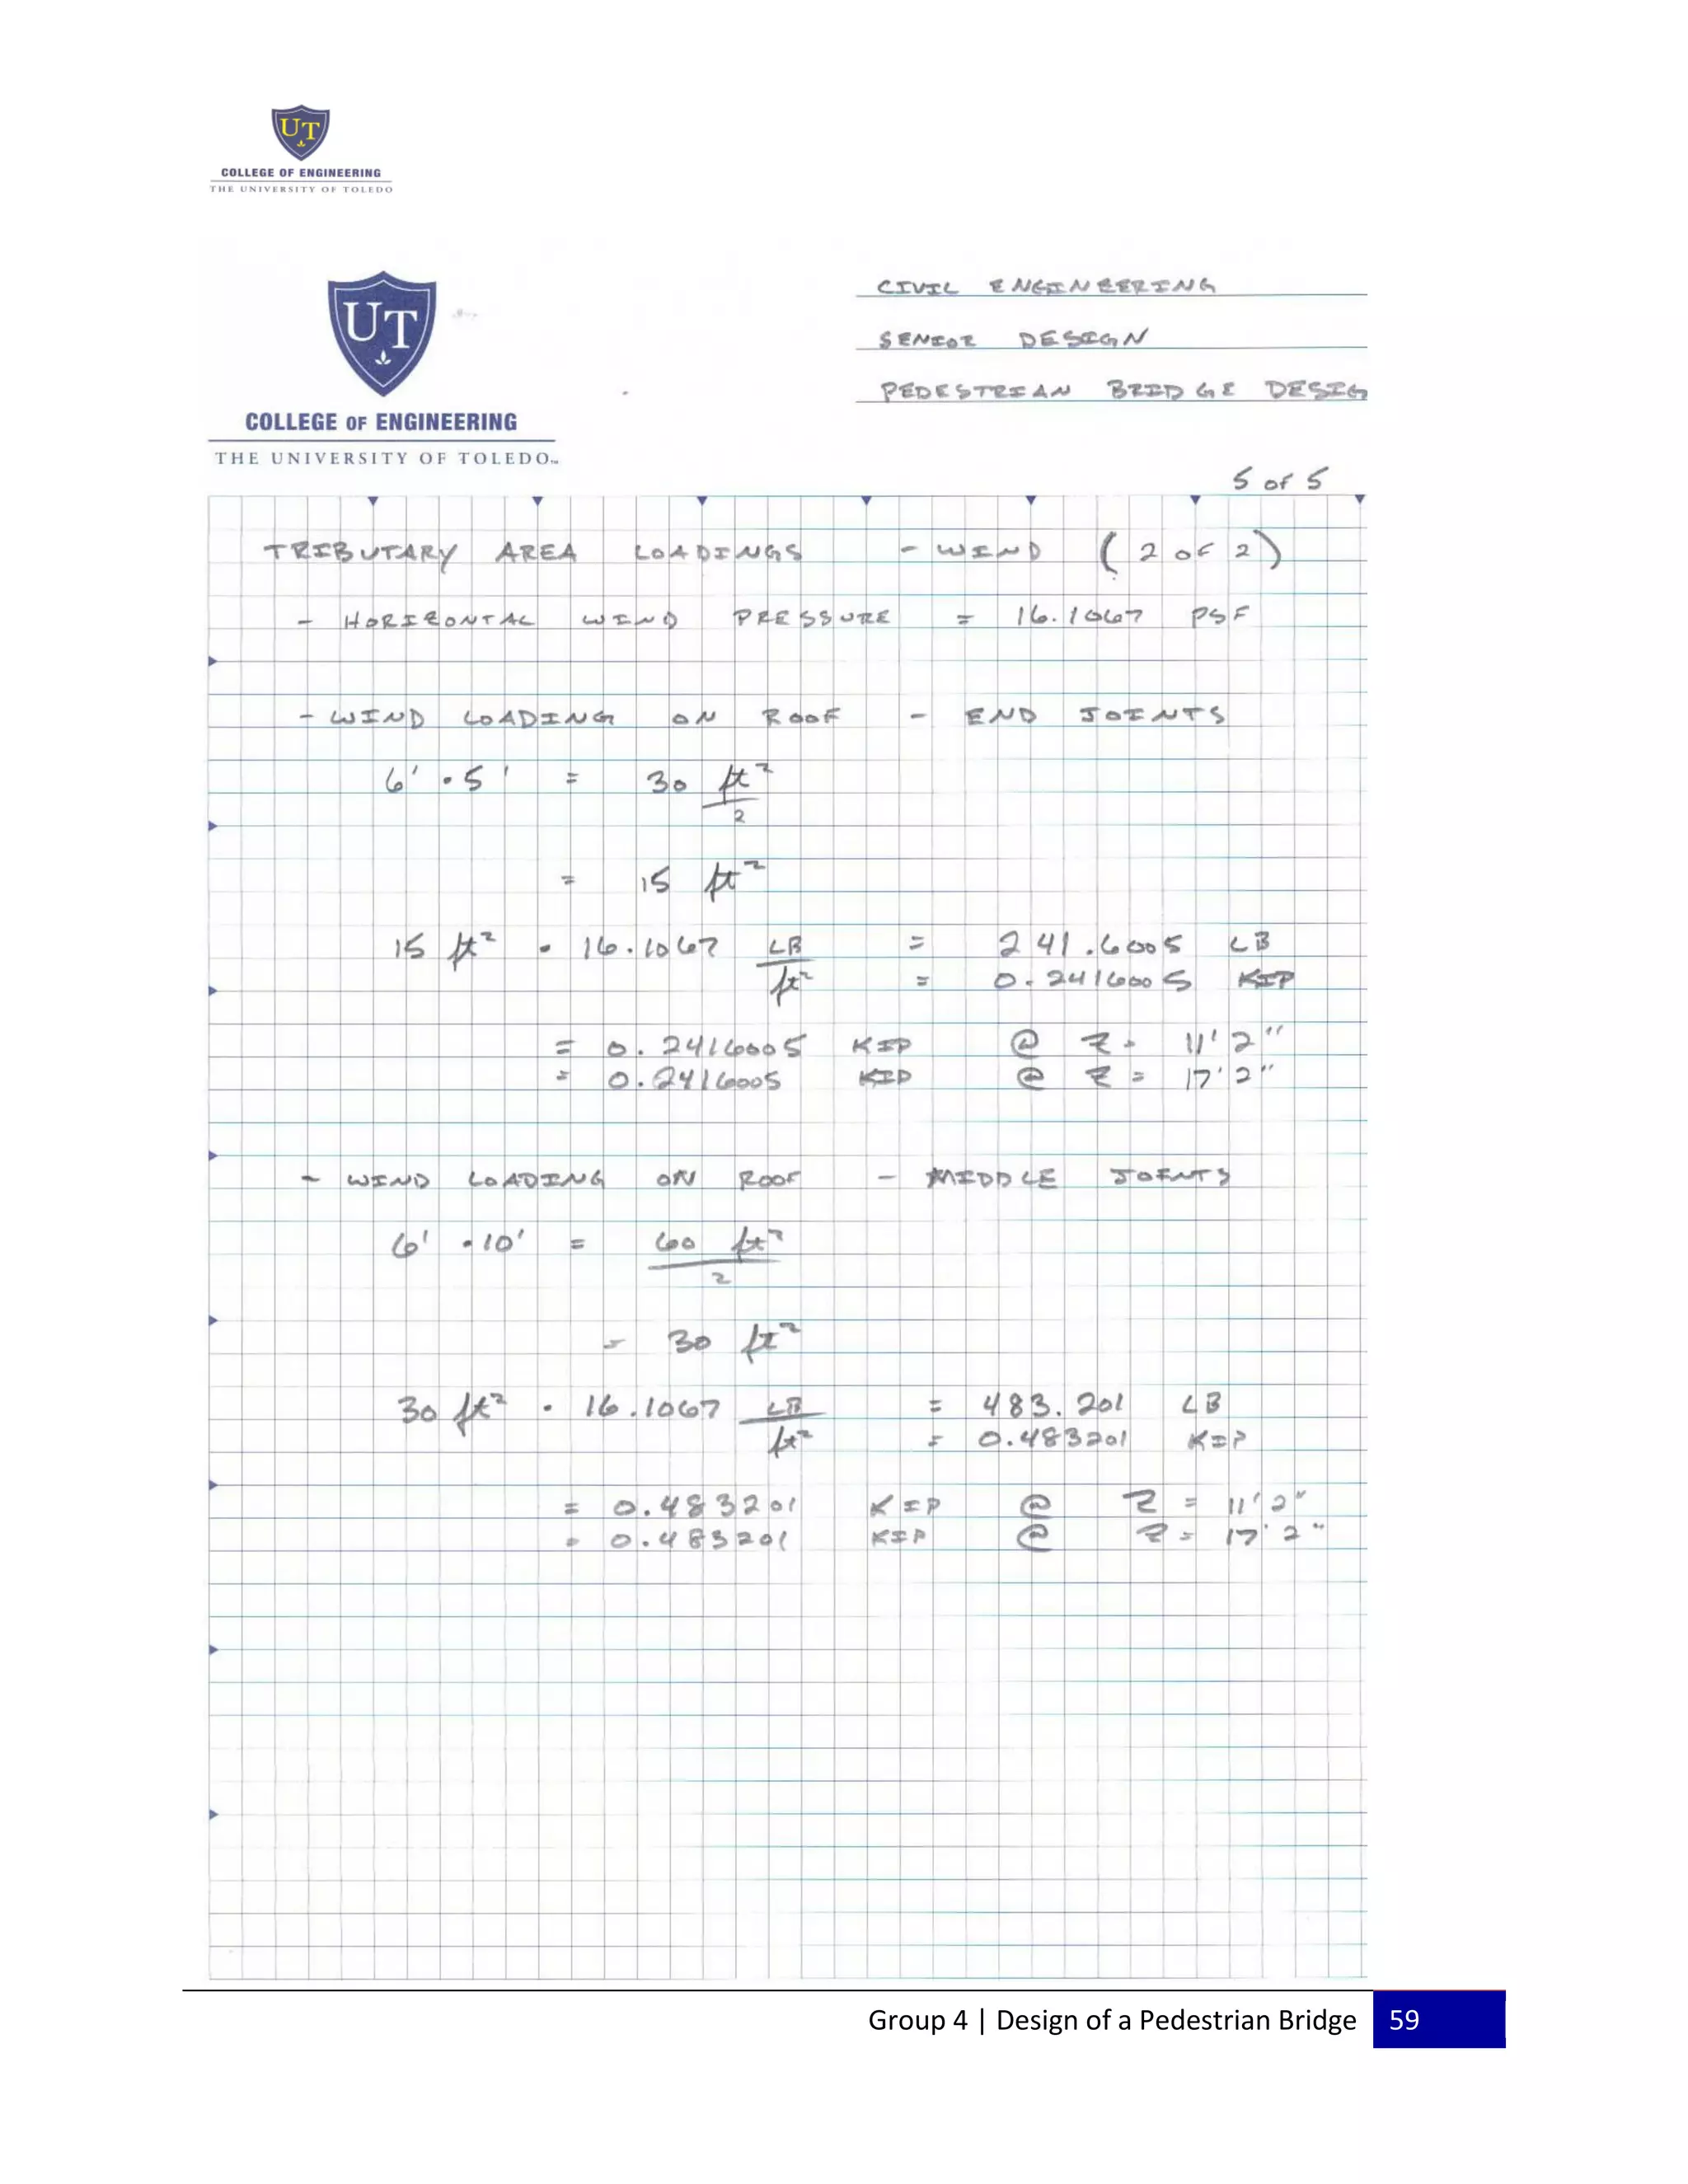 UT
COLLEGE OF ENGINEERING
THE UNIVERSITY OF TOLEDO
CIVIL ENGINEERING
SENIOR DESIGN
PEDESTRIAN BRIDGE DESIG
UT
COLLEGE OF ENGINEERING
THE UNIVERSITY OF TOLEDO™
5 of 5
TRIBUTARY AREA LOADINGS - WIND (2 OF 2)
- HORIZONTAL WIND PRESSURE = 16.1067 PSF
- WIND LOADING ON ROOF - END JOINTS
6' · 5' = 30 ft²
2
= 15 ft²
15 ft² · 16.1067 LB = 241.6005 LB
ft² = 0.2416005 KIP
= 0.2416005 KIP @ Z = 11' 2"
= 0.2416005 KIP @ Z = 17' 2"
- WIND LOADING ON ROOF - MIDDLE JOINTS
6' · 10' = 60 ft²
2
= 30 ft²
30 ft² · 16.1067 LB = 483.201 LB
ft² = 0.483201 KIP
= 0.483201 KIP @ Z = 11' 2"
= 0.483201 KIP @ Z = 17' 2"
Group 4 | Design of a Pedestrian Bridge 59